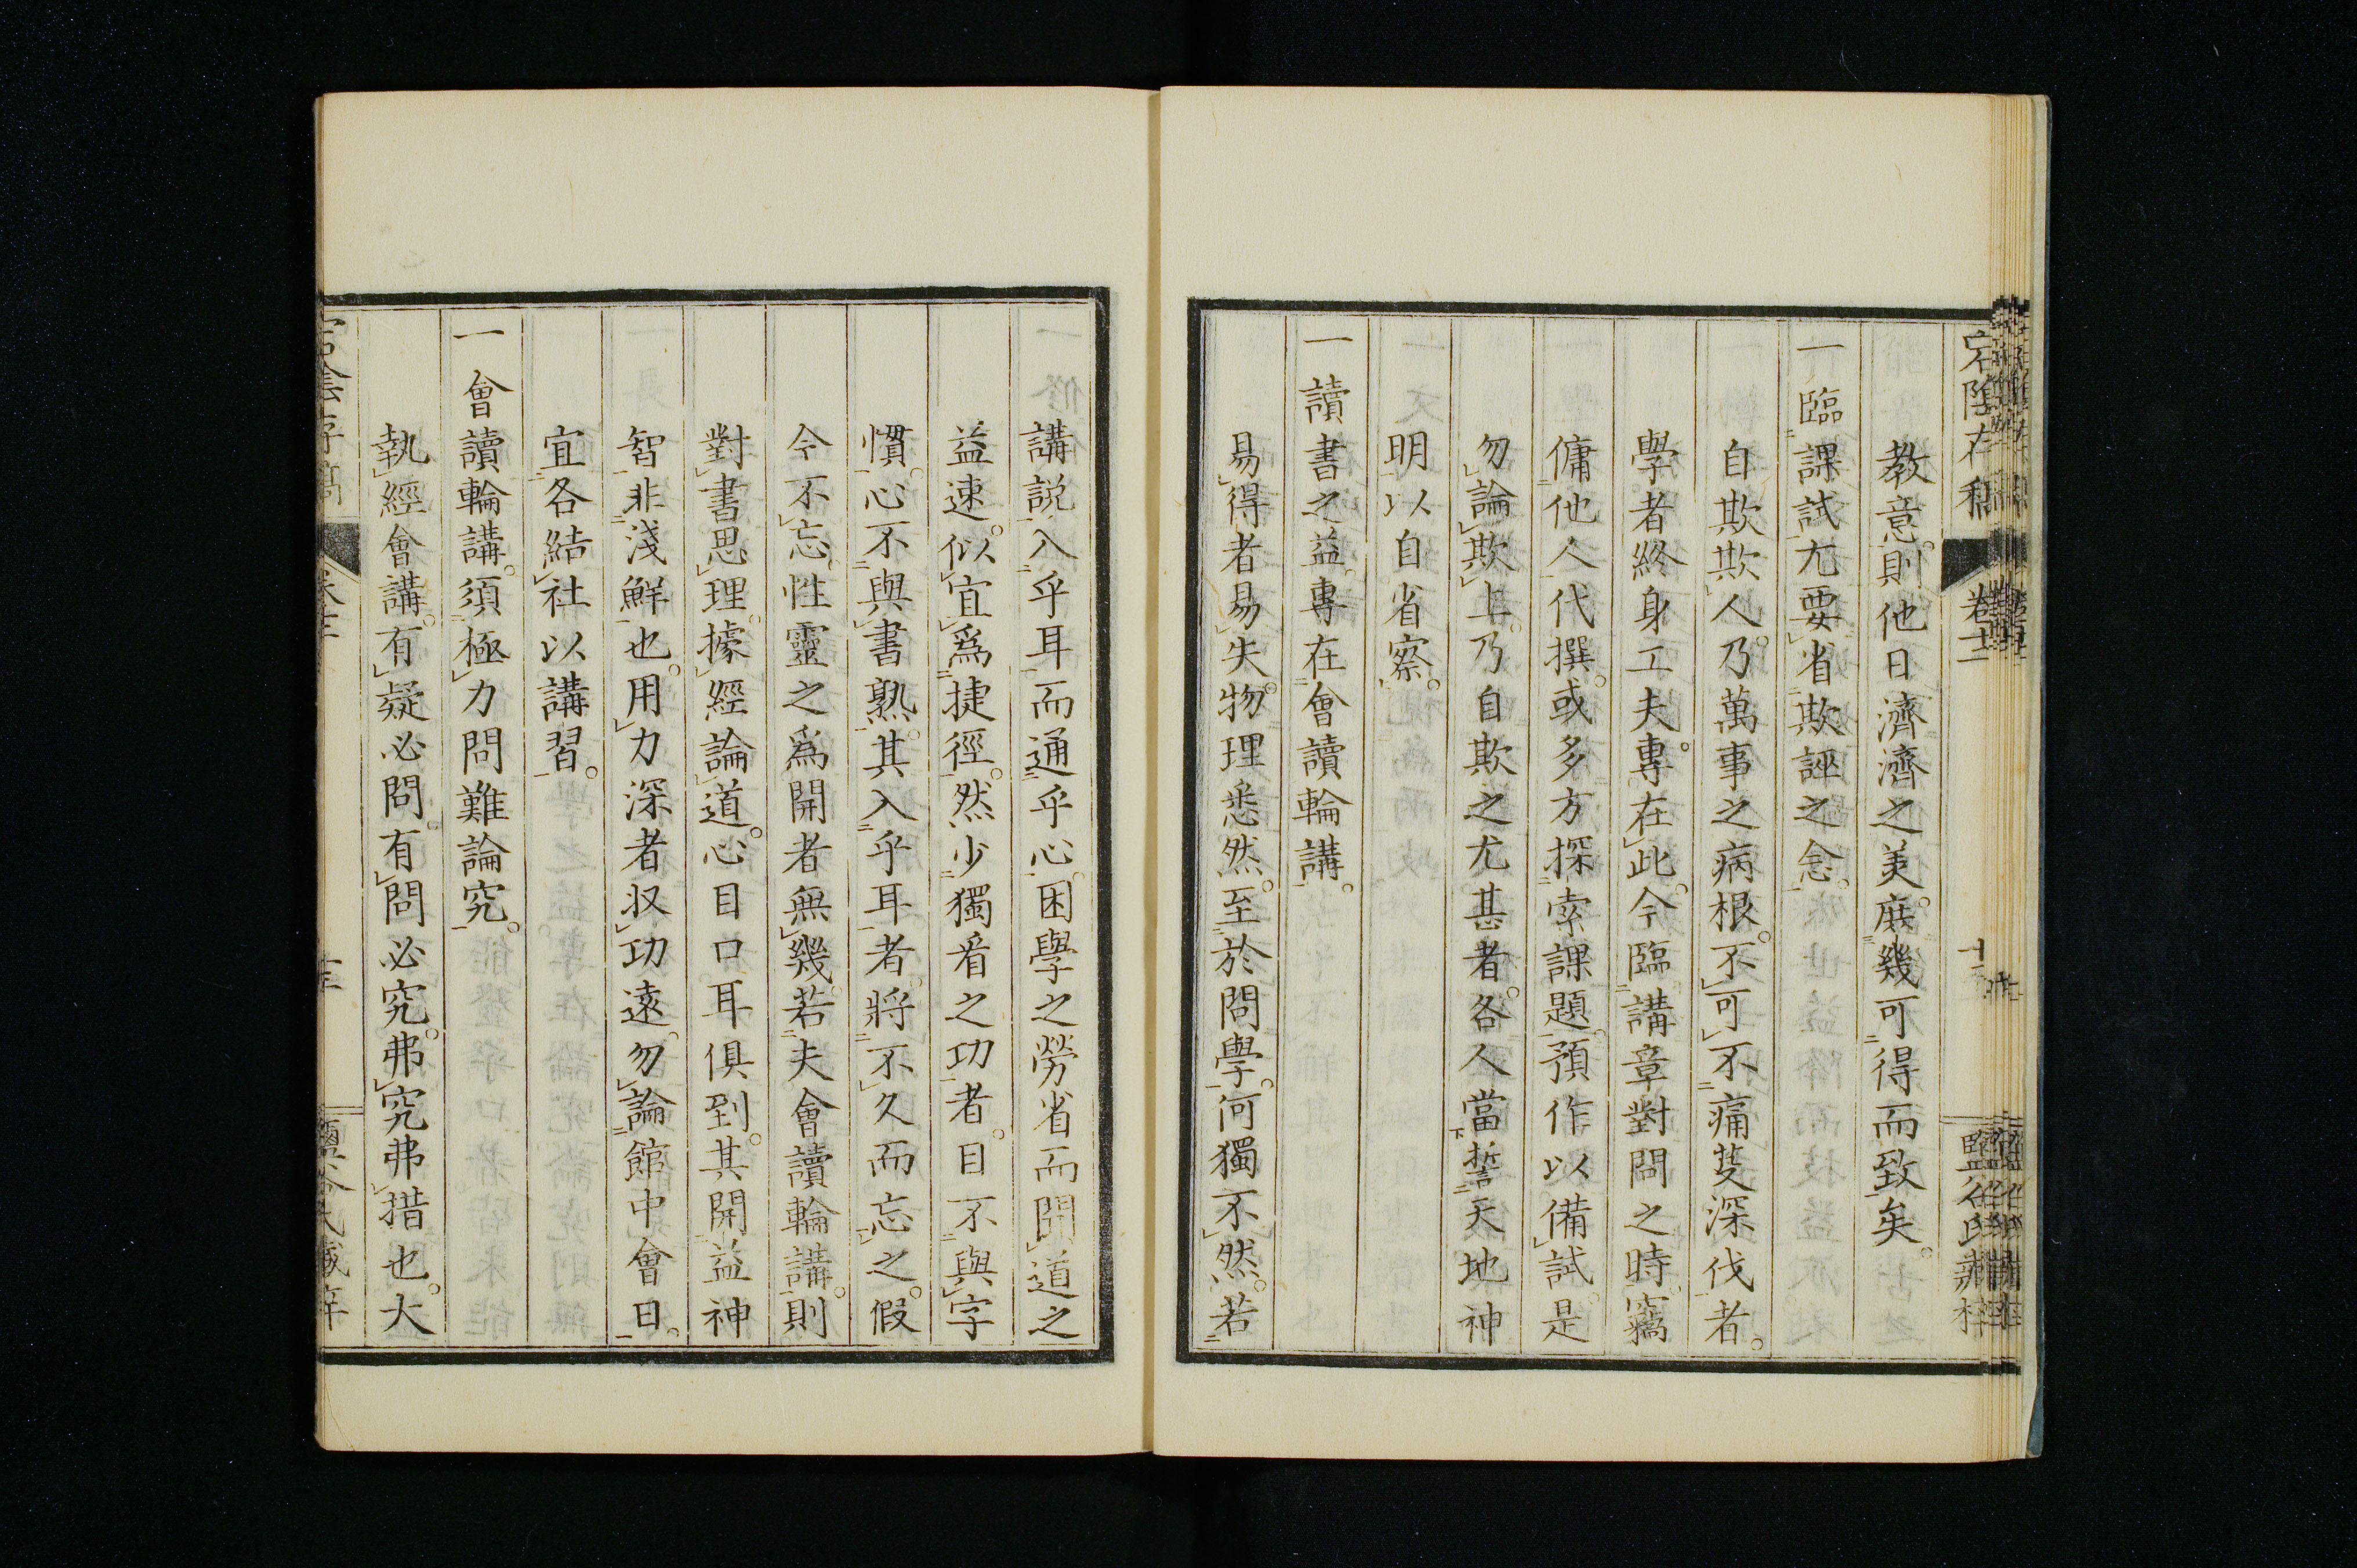 教意。則他日濟濟之美。庶幾可得而致矣。
一臨課試尤要省欺誣之念。
自欺欺人。乃萬事之病根。不可不痛芟深伐者。
學者終身工夫。專在此。今臨講章對問之時。竊
傭他人代撰。或多方探索課題。預作以備試。是
勿論欺上。乃自欺之尤甚者。各人當誓天地神
明以自省察。
一讀書之益。專在會讀輪講。
易得者易失。物理悉然。至於問學。何獨不然。若
講說入乎耳而通乎心。困學之勞省而聞道之
益速。似宜爲捷徑。然少獨看之功者。目不與字
慣。心不與書熟。其入乎耳者。將不久而忘之。假
令不忘。性靈之爲開者無幾。若夫會讀輪講。則
對書思理。據經論道。心目口耳俱到。其開益神
智非淺鮮也。用力深者収功遠。勿論館中會日。
宜各結社以講習。
一會讀輪講。須極力問難論究。
執經會講。有疑必問。有問必究。弗究弗措也。大